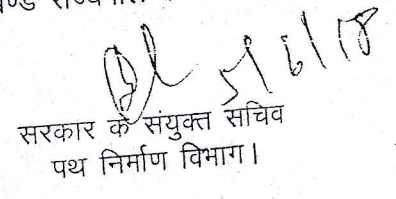 राज्यपाल
5/6/18
सरकार के संयुक्त सचिव
पथ निर्माण विभाग।